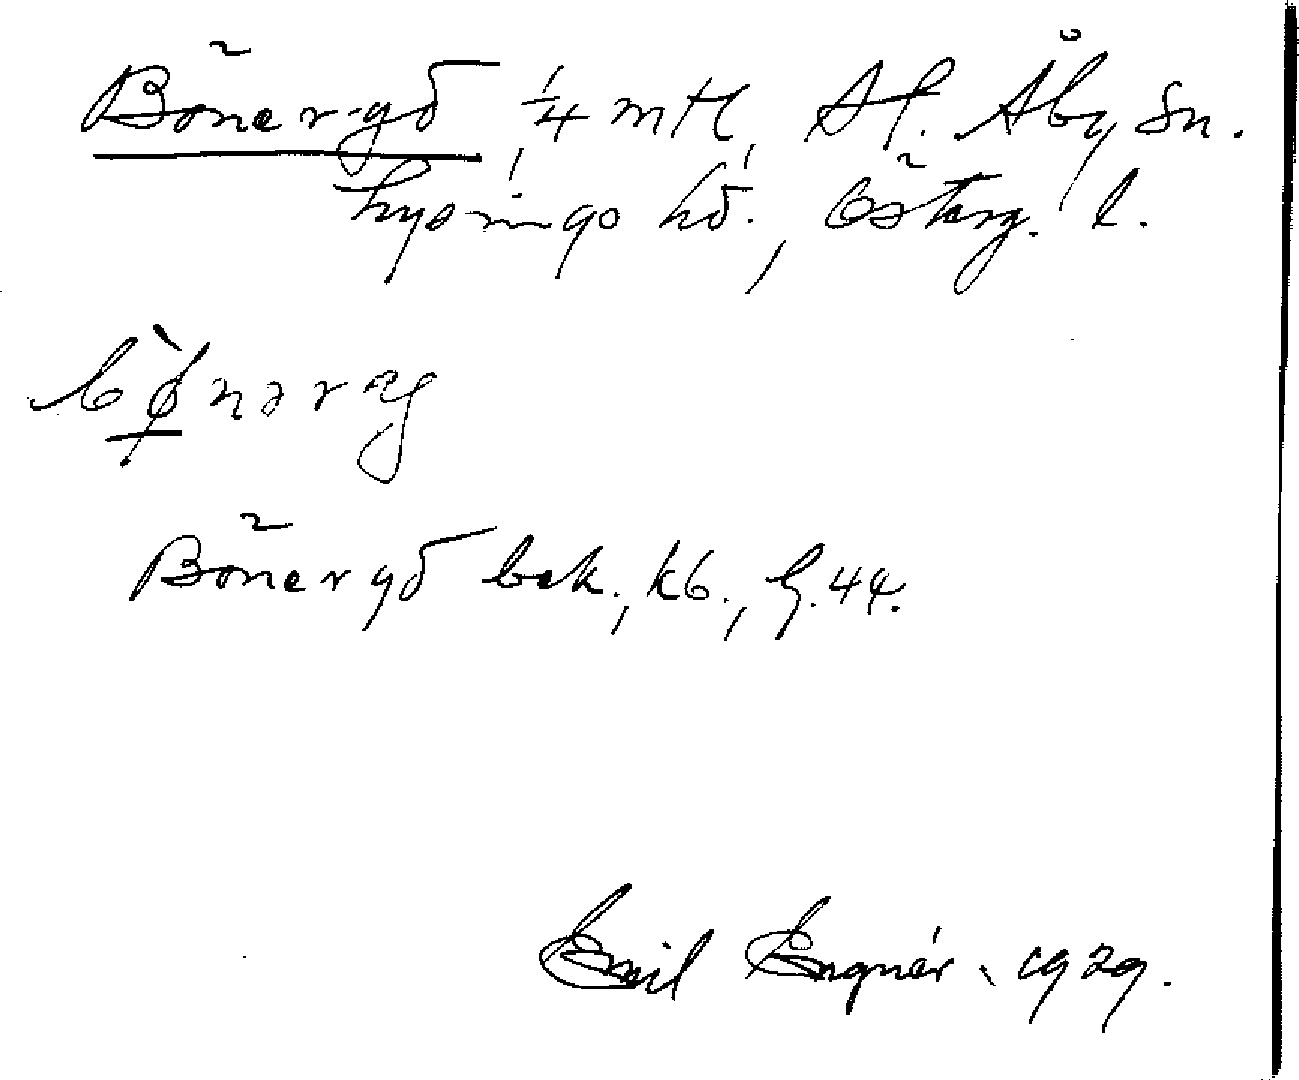 Bönergd, 1/4 mtl, St. Åby sn.
Lysings hd., Österg. l.
Bönergd bek., kb., G. 44.
Emil Engnér 1929.